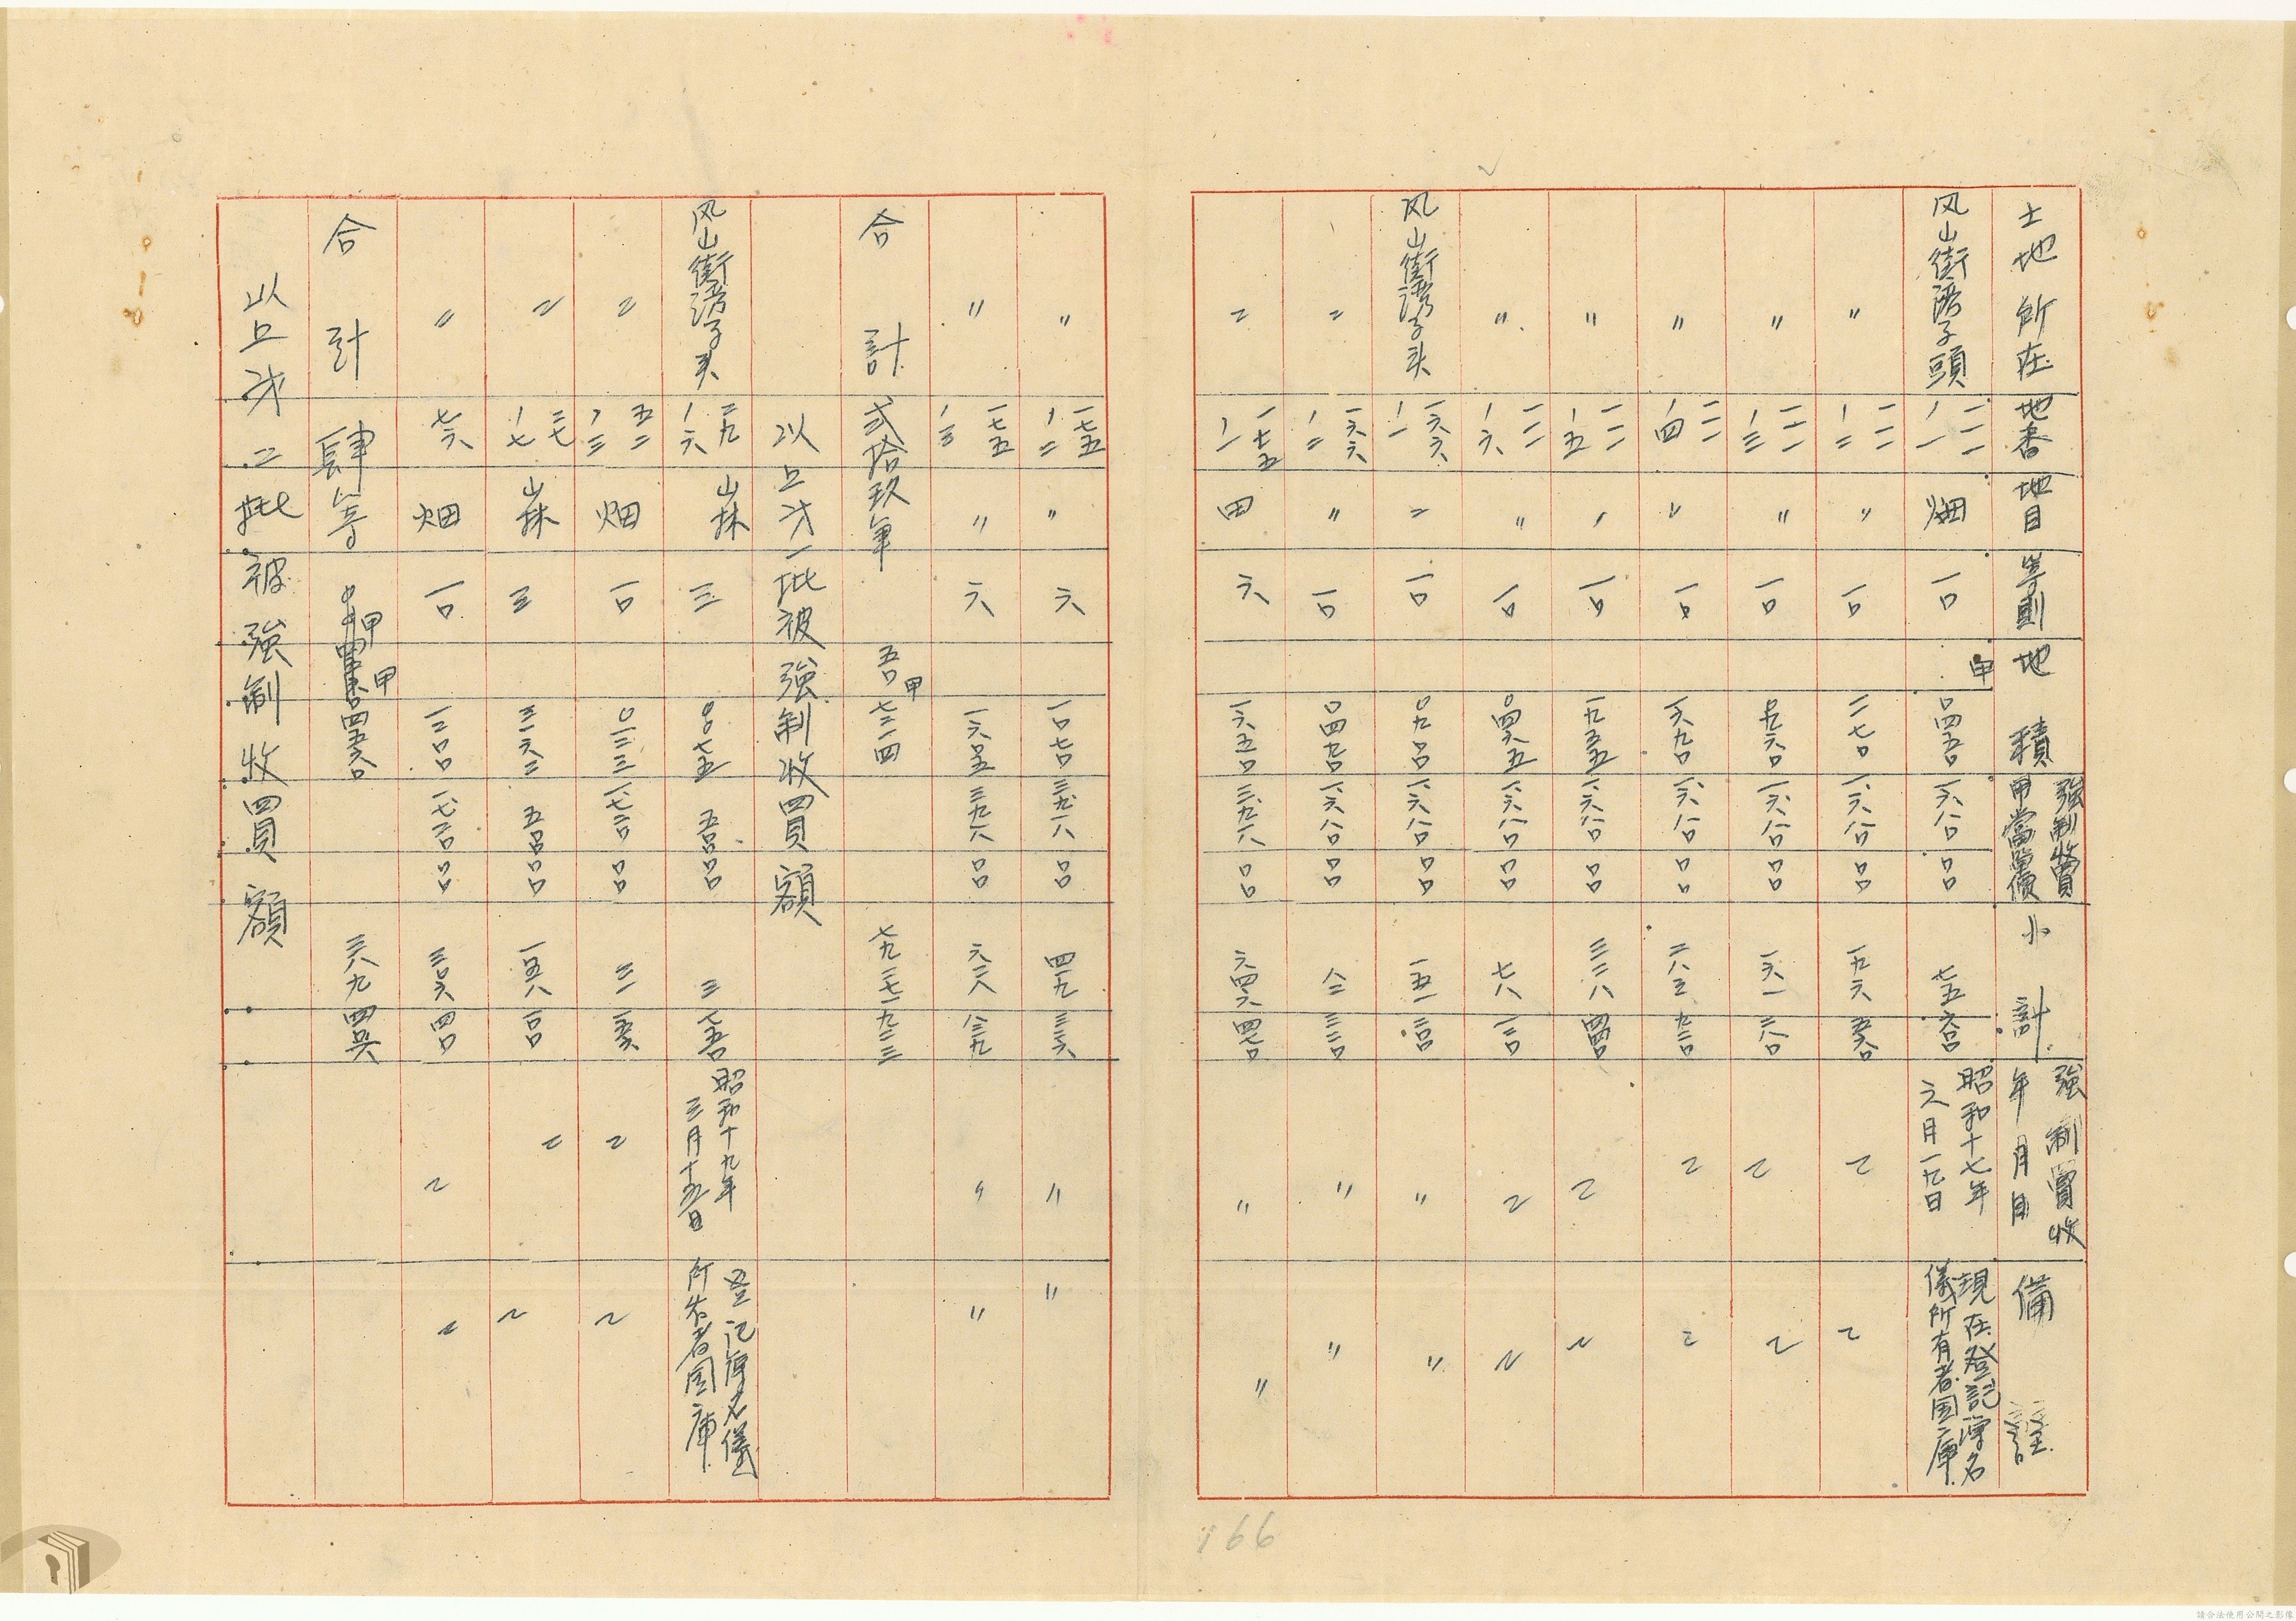 土地所在 地番 地目 等則 地積 強制收買甲當單價 小計 強制買收年月日 備註
風山街塆子頭 一一一ノ一 畑 一〇 甲〇四五〇 一六八〇 〇〇 七五 六〇 昭和十七年六月一九日 現在登記簿名儀所有者国庫
〃 一一一ノ二 〃 一〇 一一七〇 一六八〇 〇〇 一九六 五六〇 〃 〃
〃 一一一ノ三 〃 一〇 〇九六〇 一六八〇 〇〇 一六一 二八〇 〃 〃
〃 一一一ノ四 〃 一〇 一六九〇 一六八〇 〇〇 二八三 九二〇 〃 〃
〃 一一一ノ五 〃 一〇 一九五五 一六八〇 〇〇 三二八 四四〇 〃 〃
〃 一一一ノ六 〃 一〇 〇四六五 一六八〇 〇〇 七八 一二〇 〃 〃
风山街塆子头 一六六ノ一 〃 一〇 〇九〇〇 一六八〇 〇〇 一五一 二〇〇 〃 〃
〃 一六六ノ二 〃 一〇 〇四九〇 一六八〇 〇〇 八二 三二〇 〃 〃
〃 一七五ノ一 田 六 一六五〇 三九一八 〇〇 六四六 四七〇 〃 〃
166
〃 一七五ノ二 〃 六 一〇七〇 三九一八 〇〇 四一九 二二六 〃 〃
〃 一七五ノ三 〃 六 一六〇五 三九一八 〇〇 六二八 八三九 〃 〃
合計 弍拾玖筆 五〇甲七三一四 七九二七一 九二三
以上才一批被強制收買額
风山街塆子头 二九ノ六 山林 三 〇〇七五 五〇〇 〇〇 三 七五〇 昭和十九年三月十五日 登记簿名儀所有者国庫
〃 五二ノ三 畑 一〇 〇一三三 一七二〇 〇〇 二二 一五六 〃 〃
〃 三七ノ七 山林 三 三一六二 五〇〇 〇〇 一五八 一〇〇 〃 〃
〃 七六 畑 一〇 一二〇〇 一七二〇 〇〇 二〇六 四〇 〃 〃
合計 肆筆 甲四五六〇 三八九 四〇六
以上才二批被強制收買額
請合法使用公開之影像